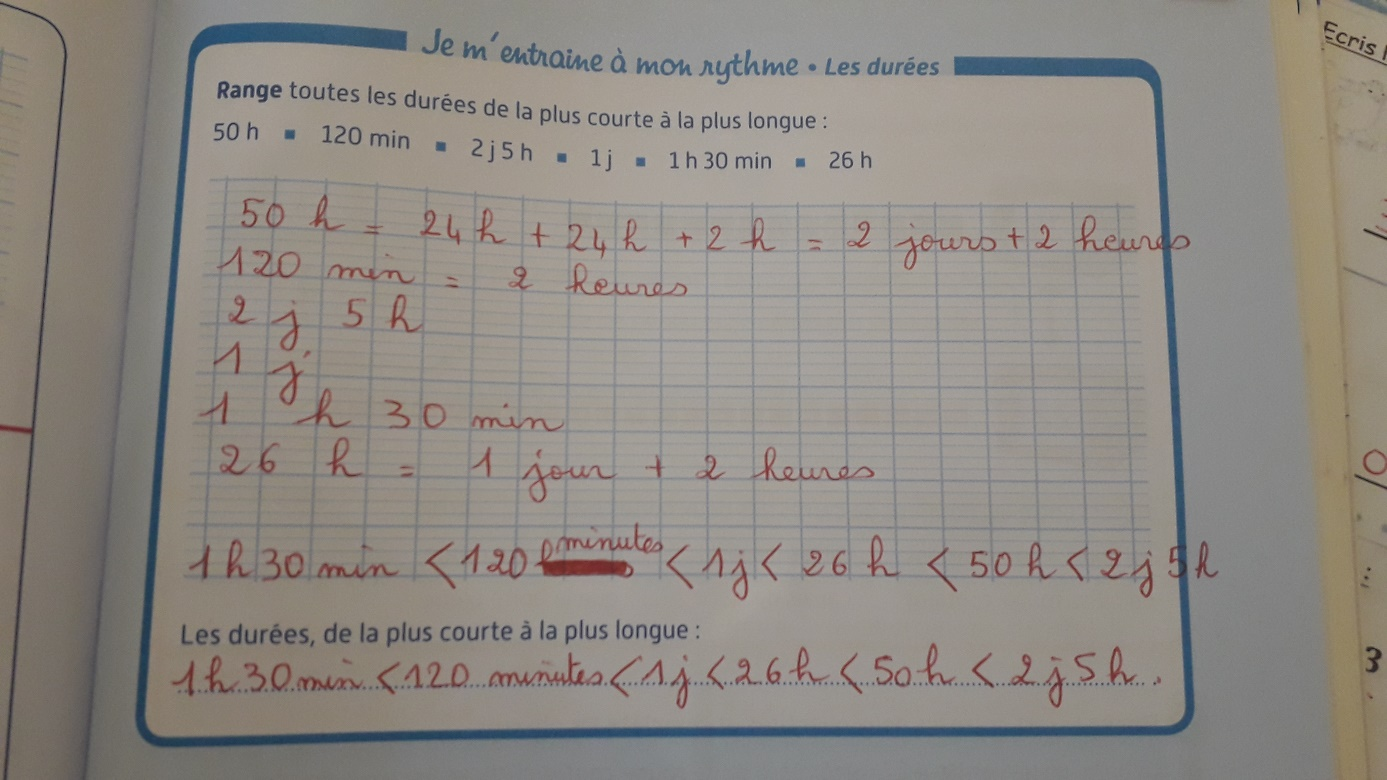 Je m'entraine à mon rythme • Les durées
Ecris
Range toutes les durées de la plus courte à la plus longue :
50 h ▪ 120 min ▪ 2 j 5 h ▪ 1 j ▪ 1 h 30 min ▪ 26 h
50 h = 24 h + 24 h + 2 h = 2 jours + 2 heures
120 min = 2 heures
2 j 5 h
1 j
1 h 30 min
26 h = 1 jour + 2 heures
1 h 30 min < 120 minutes < 1 j < 26 h < 50 h < 2 j 5 h
Les durées, de la plus courte à la plus longue :
1 h 30 min < 120 minutes < 1 j < 26 h < 50 h < 2 j 5 h.
3